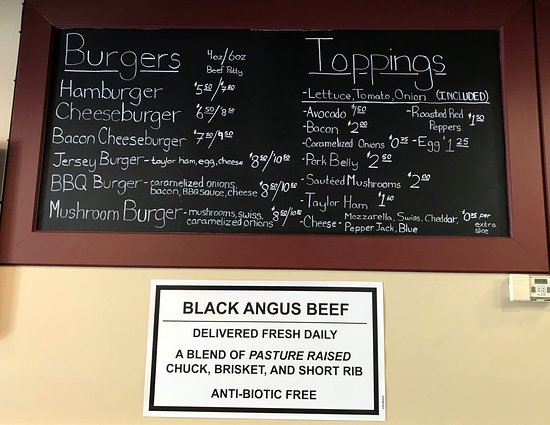 Burgers 4oz/6oz
Beef Patty
Hamburger $5.50/7.50
Cheeseburger $6.50/8.50
Bacon Cheeseburger $7.50/9.50
Jersey Burger - taylor ham, egg, cheese $8.50/10.50
BBQ Burger - caramelized onions,
bacon, BBQ sauce, cheese $8.50/10.50
Mushroom Burger - mushrooms, swiss,
caramelized onions $8.50/10.50
Toppings
- Lettuce, Tomato, Onion (INCLUDED)
- Avocado $1.50
- Bacon $2.00
- Caramelized Onions $0.75
- Pork Belly $2.50
- Sautéed Mushrooms $2.00
- Taylor Ham
- Cheese - Mozzarella, Swiss, Cheddar,
Pepper Jack, Blue
per
extra
slice
- Roasted Red
Peppers $1.50
- Egg $1.25
BLACK ANGUS BEEF
DELIVERED FRESH DAILY
A BLEND OF PASTURE RAISED
CHUCK, BRISKET, AND SHORT RIB
ANTI-BIOTIC FREE